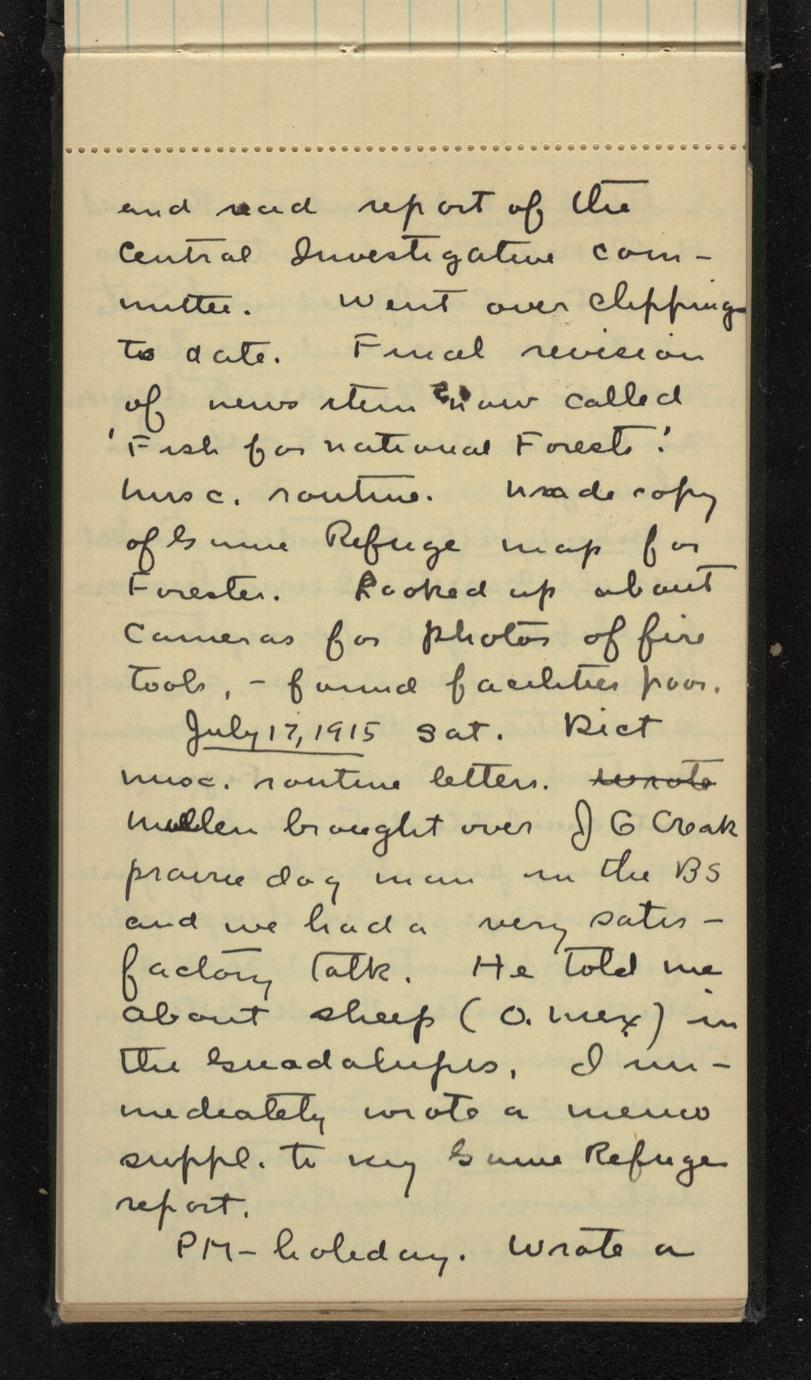 and read report of the
Central Investigative com-
mittee. Went over clippings
to date. Final revision
of news item now called
'Fish for national Forests'.
Misc. routine. Made copy
of Game Refuge map for
Forester. Looked up about
Cameras for photos of fire
tools, - found facilities poor.
July 17, 1915 Sat. Dict
misc. routine letters. Wrote
Mullen brought over J G Crook
prairie dog man in the BS
and we had a very satis-
factory talk. He told me
about sheep (O. Mex) in
the Guadalupes, I im-
mediately wrote a memo
suppl. to my Game Refuge
report.
PM- holiday. Wrote a